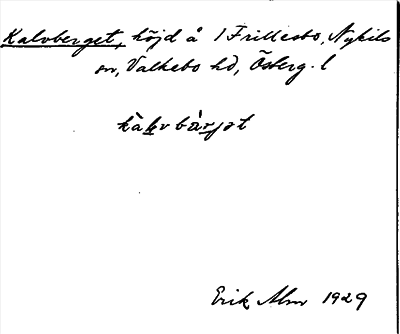 Kalvberget, höjd å 1 Frillesbo, Nykils
sn, Valkebo hd, Österg. l
kàlvbärjət
Erik Alm 1929